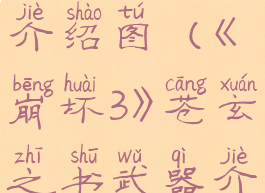 jiè shào tú
介绍图（《
bēng huài cāng xuán
崩坏3》苍玄
zhī shū wǔ qì jiè
之书武器介